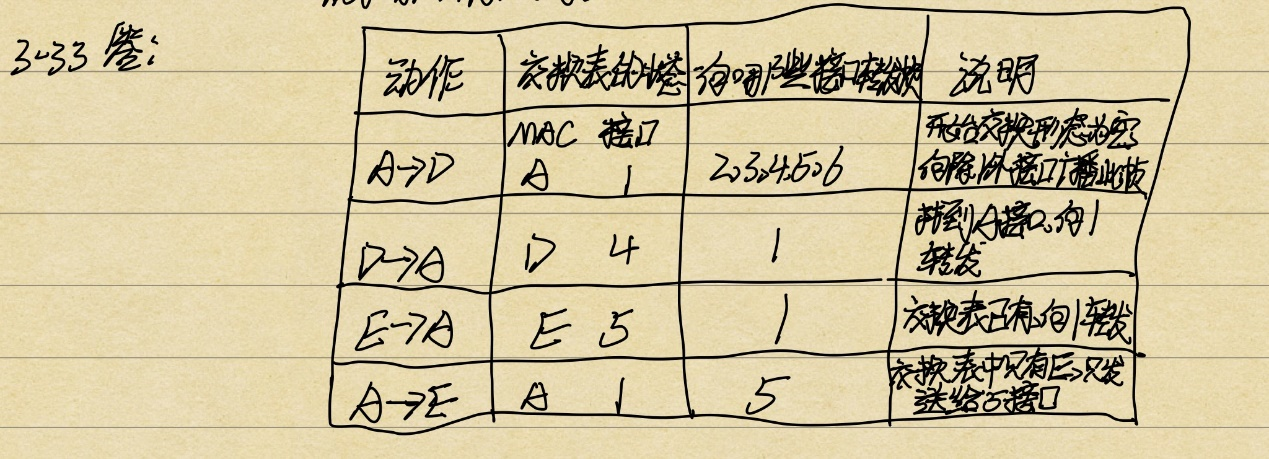 3-33 答:
动作 交换表的状态 向哪些接口转发帧 说明
MAC 接口
A→D A 1 2,3,4,5,6 开始交换形态为空
向除1外接口广播此帧
D→A D 4 1 找到A接口,向1
转发
E→A E 5 1 交换表已有,向1转发
A→E A 1 5 交换表中只有E,只发
送给5接口